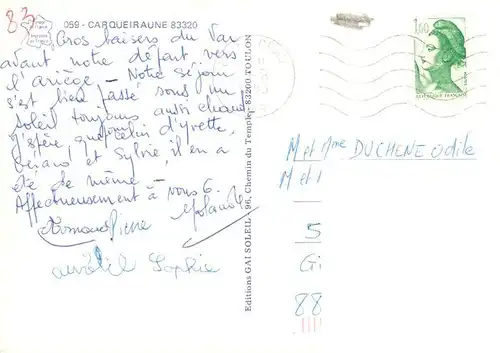 83
059 - CARQUEIRAUNE 83320
Gros baisers du Var
avant notre départ vers
l'ariège - Notre séjour
s'est bien passé sous un
soleil toujours aussi chaud
J'espère, que pour d'Yvette,
et Sylvie, il en a
été de même -
Affectueusement à vous 6.
Yolande
Pierre
aurélie Sophie
Editions GAI SOLEIL - 96, Chemin du Temple, 83200 TOULON
1,60
REPUBLIQUE FRANÇAISE
M et Mme DUCHENE Odile
M et
5
Gi
88